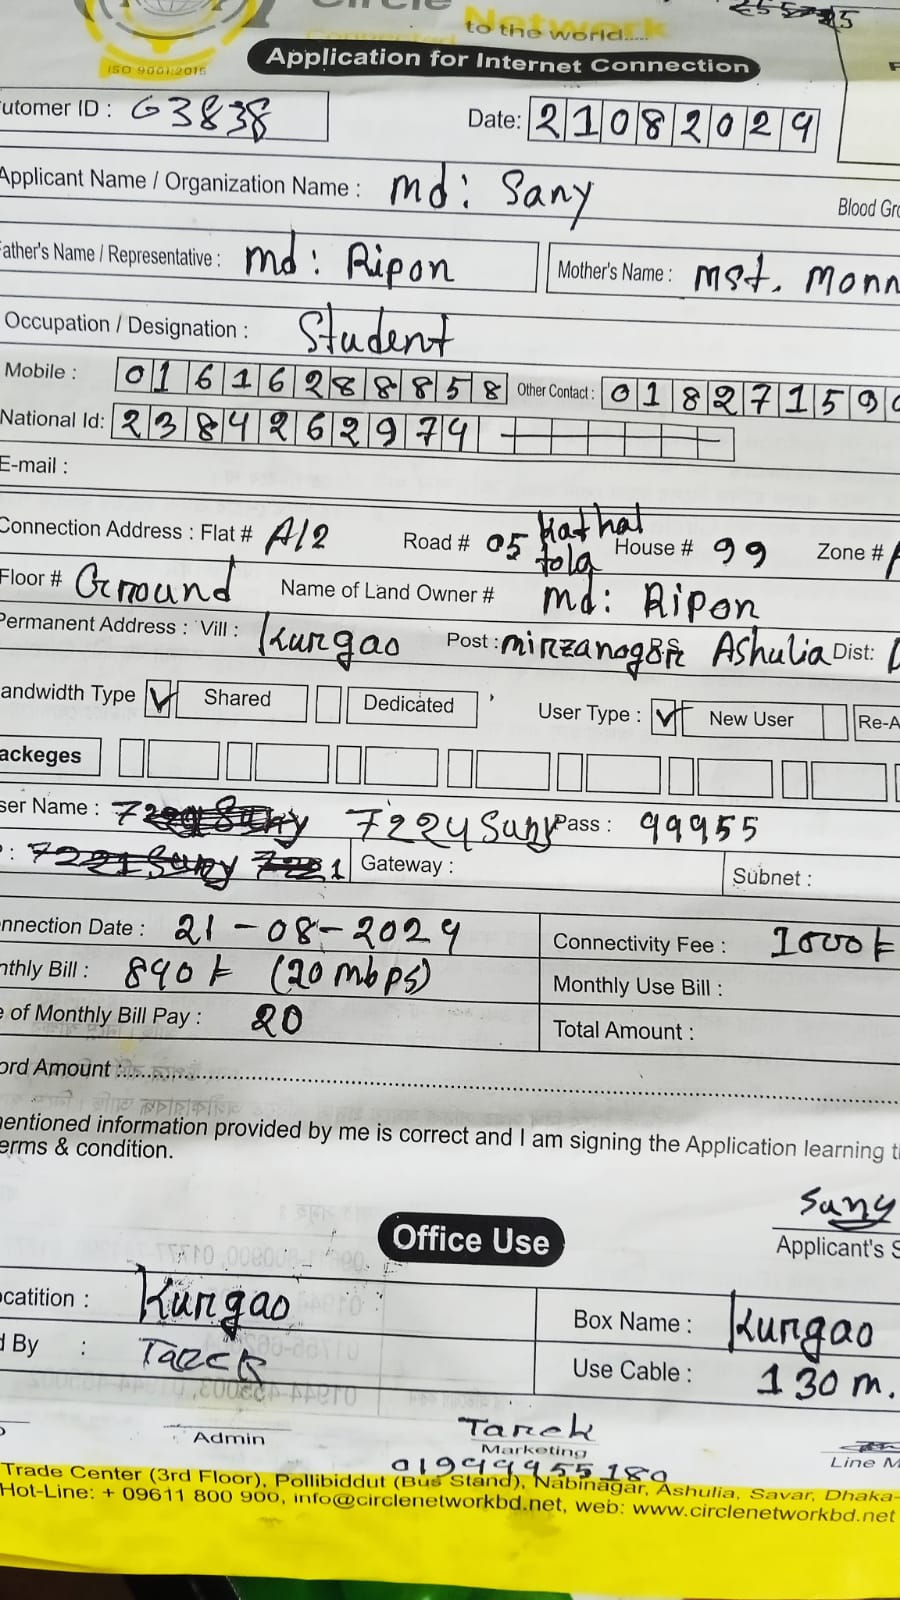 Circle Network
to the world.....
ISO 9001:2015
Application for Internet Connection
utomer ID : G3838 Date: 21082024
Applicant Name / Organization Name : md: Sany
Blood Gro
ather's Name / Representative : md: Ripon Mother's Name : mst. Monn
Occupation / Designation : Student
Mobile : 01616288858 Other Contact : 01827159
National Id: 2384262974
E-mail :
Connection Address : Flat # A/2 Road # 05 Kathal tola House # 99 Zone # A
Floor # Ground Name of Land Owner # md: Ripon
Permanent Address : Vill : Kurgao Post : mirzanogor Ashulia Dist:
andwidth Type Shared Dedicated User Type : New User Re-A
ackeges
ser Name : 7224Sany Pass : 99955
: 1 Gateway : Subnet :
nnection Date : 21-08-2024 Connectivity Fee : 1000 ৳
nthly Bill : 890 ৳ (20 mbps) Monthly Use Bill :
e of Monthly Bill Pay : 20 Total Amount :
ord Amount :
mentioned information provided by me is correct and I am signing the Application learning t
erms & condition.
Sany
Applicant's S
Office Use
ocatition : Kurgao Box Name : Kurgao
d By : Tarek Use Cable : 130 m.
Admin
Tarek
Marketing
01944955180
Line M
Trade Center (3rd Floor), Pollibiddut (Bus Stand), Nabinagar, Ashulia, Savar, Dhaka-
Hot-Line: + 09611 800 900, info@circlenetworkbd.net, web: www.circlenetworkbd.net